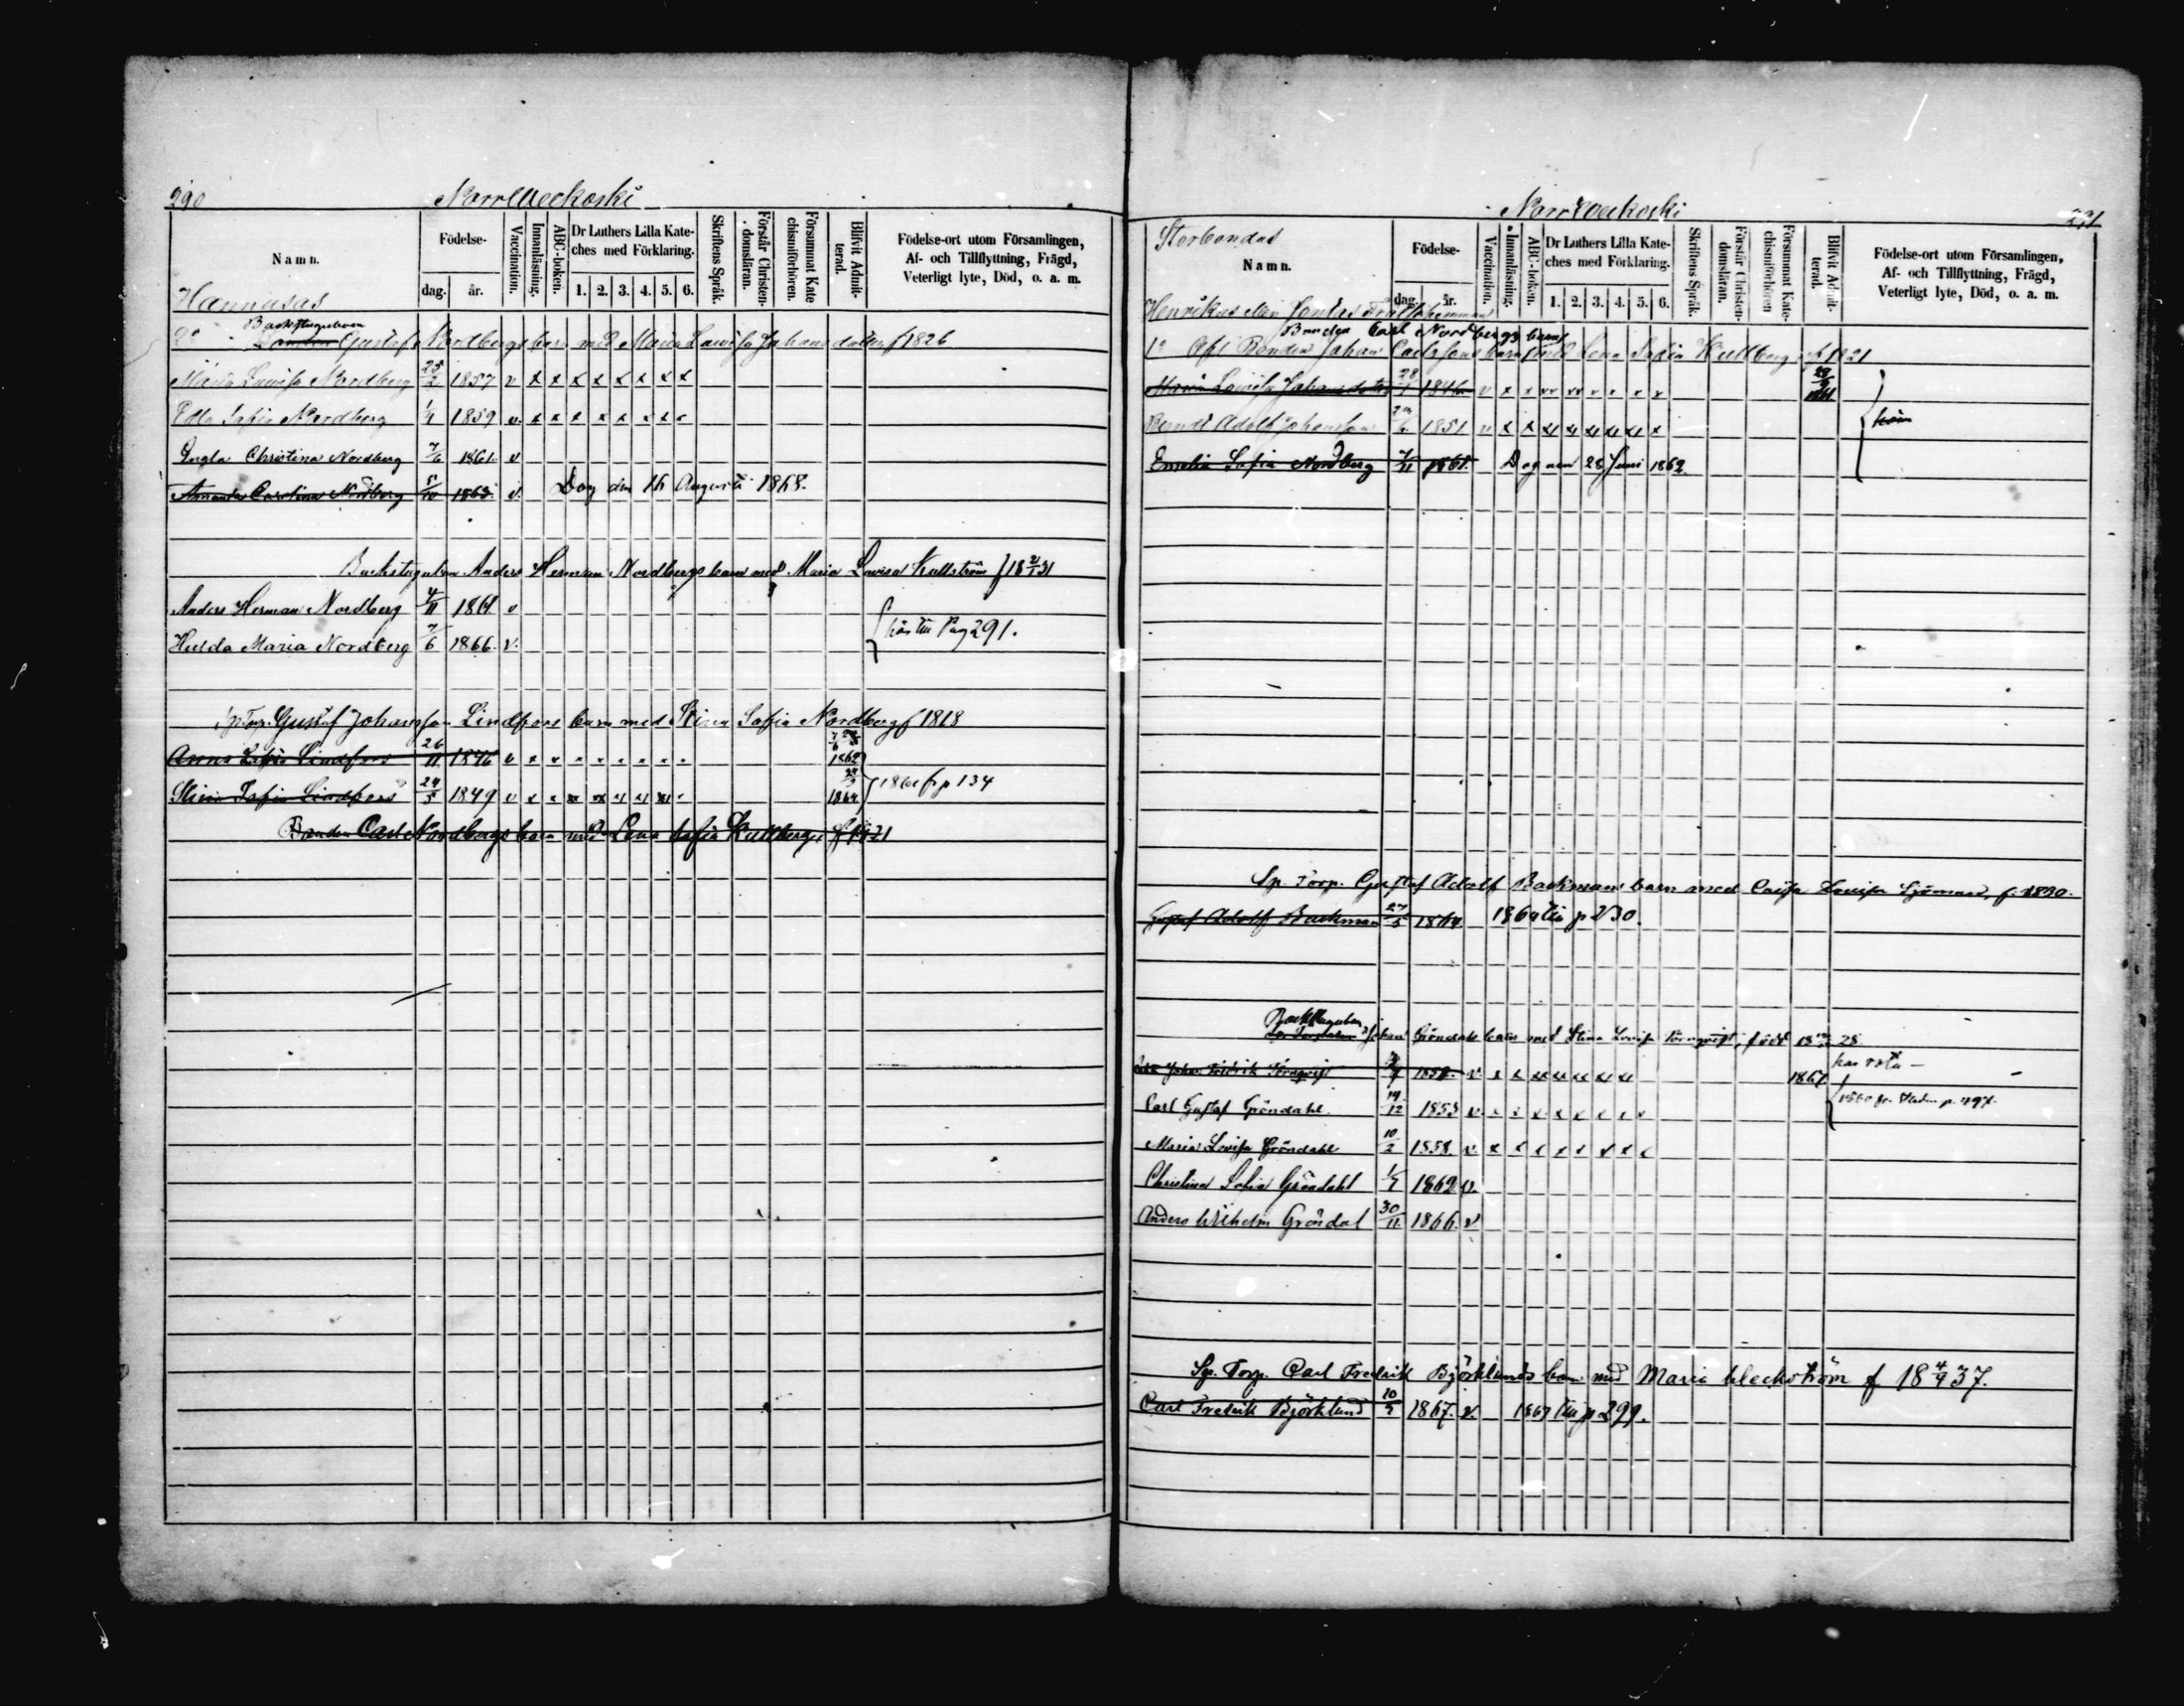 290
Norrveckoski
Namn.
Födelse-
dag.
år.
Vaccination.
Innanläsning.
ABC-boken.
Dr Luthers Lilla Kate-
ches med Förklaring.
1. 2. 3. 4. 5. 6.
Skriftens Språk.
Förstår Christen-
domsläran.
Försummat Kate
chismiförhören.
Blifvit Admit-
terad.
Födelse-ort utom Församlingen,
Af- och Tillflyttning, Frägd,
Veterligt lyte, Död, o. a. m.
Hannusas
Backstugubon
Gustaf Nordbergs barn med Maria Lovisa Johansdotter f 1826
Maria Lovisa Nordberg 25/2 1857 v x x x x x x x x
Edla Sofia Nordberg 1/4 1859 v. x x x x x x x x
Ingla Christina Nordberg 7/6 1861. v
Amanda Carolina Nordberg 5/10 1863. v. Dog den 16 Augusti 1868.
Backstugubon Anders Herman Nordbergs barn med Maria Lovisa Kullström f 18 2/1 31
Anders Herman Nordberg 4/11 1861 v
Hulda Maria Nordberg 7/6 1866. v.
hör till Pag 291.
Sp. Torp. Gustaf Johansson Lindfors barn med Stina Sofia Nordberg f 1818
Anna Sofia Lindfors 26/11 1846 v x x x x x x x x 1862
Stina Sofia Lindfors 24/5 1849 v x x x x x x x x 1864
fr p 134
Bonden Carl Nordbergs barn med Lena Sofia Kullberg f 1821
Norrveckoski
291
Storbondas
Namn.
Födelse-
dag.
år.
Vaccination.
Innanläsning.
ABC-boken.
Dr Luthers Lilla Kate-
ches med Förklaring.
1. 2. 3. 4. 5. 6.
Skriftens Språk.
Förstår Christen-
domsläran.
Försummat Kate-
chismiförhören
Blifvit Admit-
terad.
Födelse-ort utom Församlingen,
Af- och Tillflyttning, Frägd,
Veterligt lyte, Död, o. a. m.
Henrikus
Bonden Carl Nordbergs barn
Afl Bonden Johan Carlssons barn med Lena Sofia Kullberg f 1821
Maria Lovisa Johansdotter 28/1 1846
Adolf Johansson 1851 v x x
Emelia Sofia Nordberg 7/11 1861. Dog den 28 Juni 1862.
Sp. Torp. Gustaf Adolf Backmans barn med Caisa Lovisa Sjöman, f. 1830.
Gustaf Adolf Backman 27/5 1864. 1864 till p 230.
Backstugubon
Johan Gröndahls barn med Stina Lovisa Törnqvist, född 18 28
Johan Fridrik Törnqvist 1867
Carl Gustaf Gröndahl. 14/12 1853 v
Maria Lovisa Gröndahl 10/2 1858. v. x
Christina Sofia Gröndahl 1/7 1862 v.
Anders Wilhelm Gröndal 30/11 1866. v
Sp. Torp. Carl Fredrik Björklunds barn med Maria Weckström f 18 4/9 37.
Carl Fredrik Björklund 10/5 1867. v. 1867 till p 299.